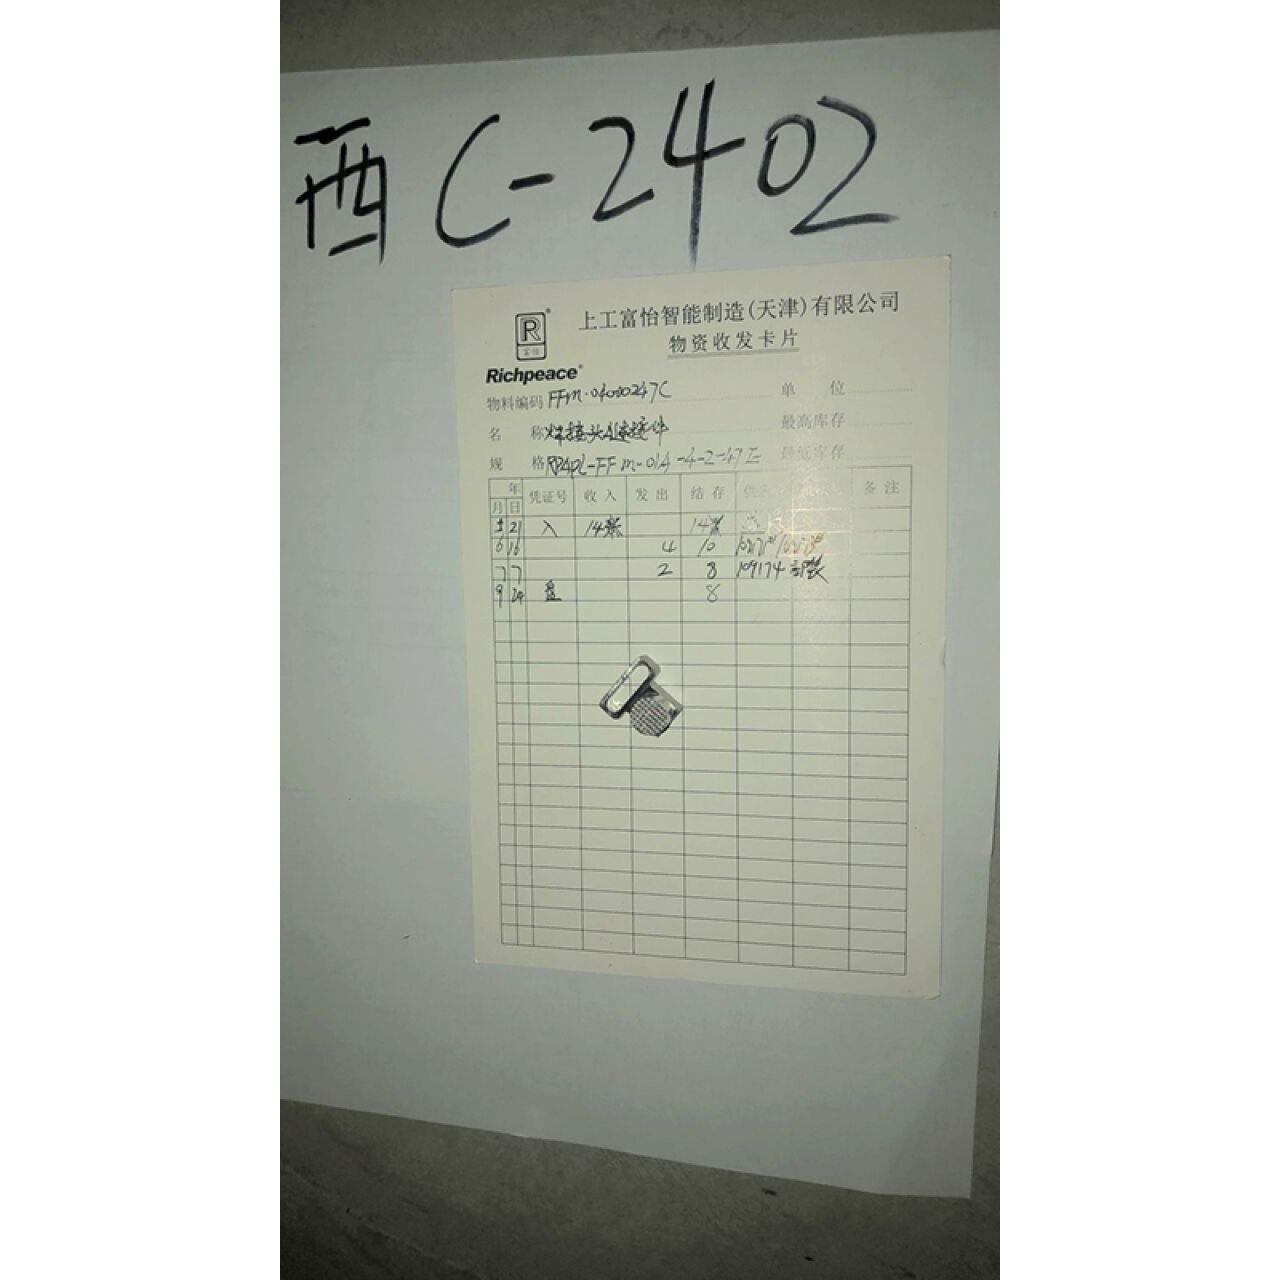 西C-2402
上工富怡智能制造(天津)有限公司
物资收发卡片
R
富怡
Richpeace
物料编码 FFm·04000247C 单位
名称 焊接头4连接件 最高库存
规格 RP4PL-FFm-01A-4-2-47Z 最低库存
年 凭证号 收入 发出 结存 备注
月 日
5 21 入 14 14
6 16 4 10
7 7 2 8 109174 部装
9 24 盘 8